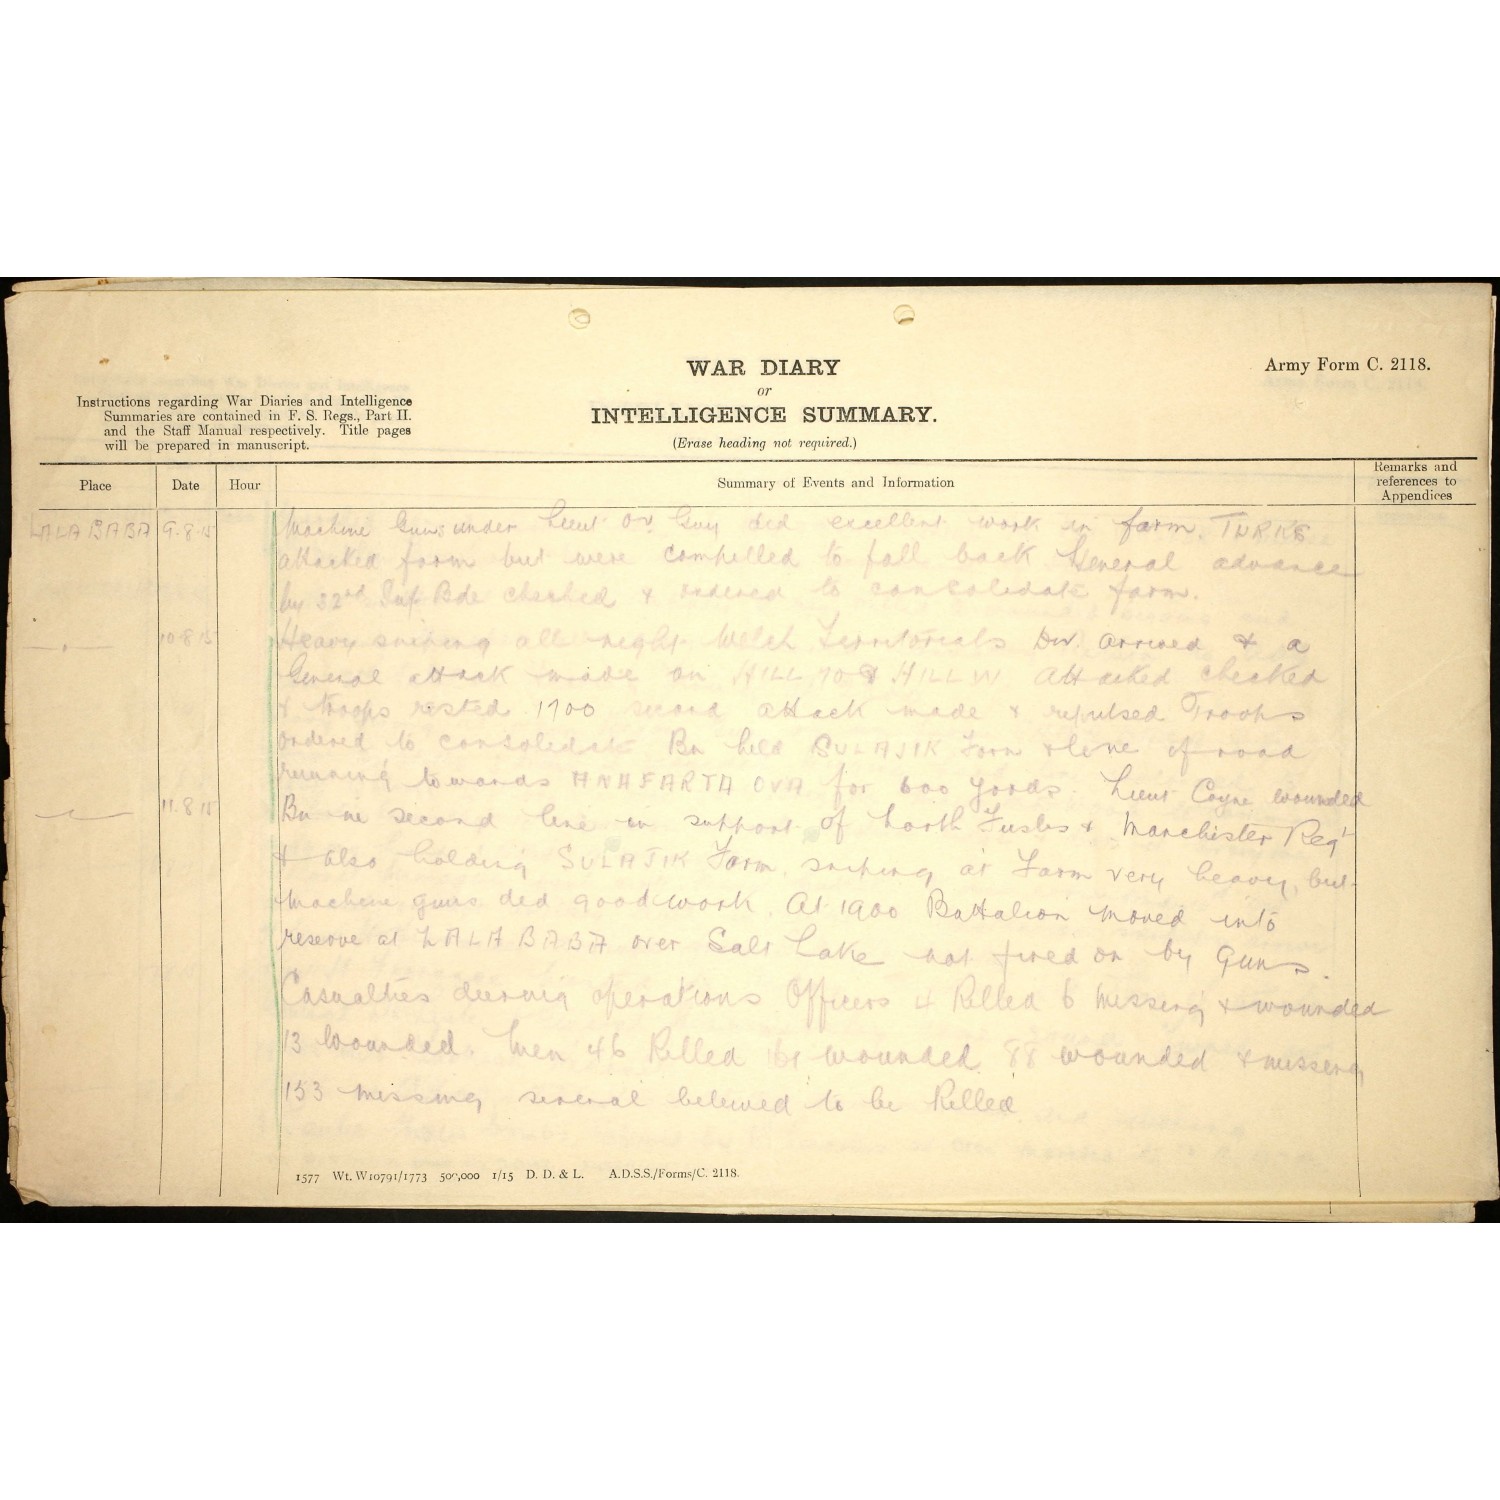 WAR DIARY
or
INTELLIGENCE SUMMARY.
(Erase heading not required.)
Army Form C. 2118.
Instructions regarding War Diaries and Intelligence
Summaries are contained in F. S. Regs., Part II.
and the Staff Manual respectively. Title pages
will be prepared in manuscript.
Place Date Hour Summary of Events and Information Remarks and references to Appendices
LALA BABA 9.8.15 Machine Guns under Lieut Guy did excellent work in farm. TURKS
attacked farm but were compelled to fall back General advance
by 32nd Inf Bde checked & ordered to consolidate farm.
10.8.15 Heavy sniping all night Welch Territorials Div. arrived & a
General attack made on HILL 70 & HILL W Attacked checked
& troops rested 1700 second attack made & repulsed Troops
ordered to consolidate Bn held SULAJIK Farm & line of road
running towards ANAFARTA OVA for 600 yards. Lieut Coyne wounded
11.8.15 Bn in second line in support of North Fusles & Manchester Regt
& also holding SULAJIK Farm, sniping at Farm very heavy, but
machine guns did good work. At 1900 Battalion moved into
reserve at LALA BABA over Salt Lake not fired on by Guns.
Casualties during operations Officers 4 Killed 6 missing & wounded
13 wounded. Men 46 Killed wounded 88 wounded & missing
153 missing several believed to be Killed
1577 Wt. W10791/1773 500,000 1/15 D. D. & L. A.D.S.S./Forms/C. 2118.